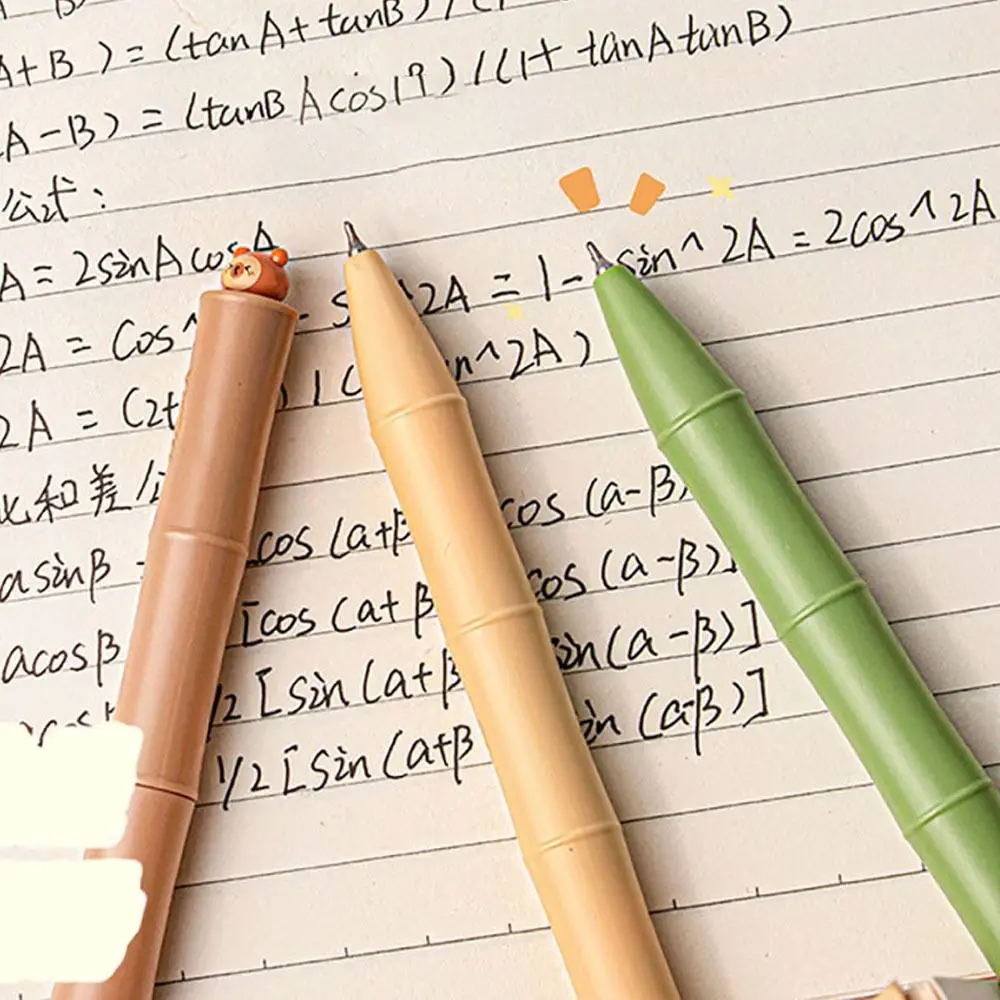 A+B) = (tanA + tanB) / (1
A-B) = (tanB Acos19) / (1+ tanAtanB)
公式:
A = 2sinAcosA
2A = Cos^ - s ^2A = 1 - sin^2A = 2cos^2A
2A = (2t ) / ( in^2A)
化和差公
asinβ - cos(a+β cos(a-β)
acosβ [cos(a+β cos(a-β)]
1/2 [sin(a+β sin(a-β)]
1/2 [sin(a+β in(a-β)]